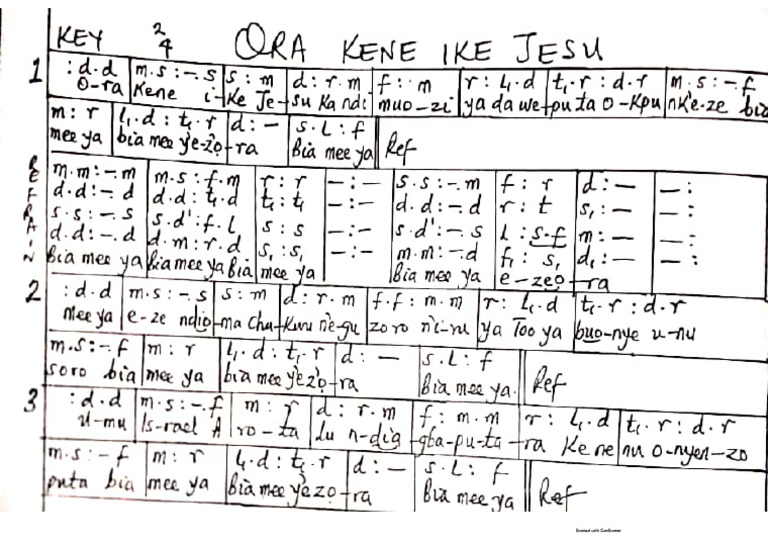 KEY 2/4 ORA KENE IKE JESU
1 | :d.d | m.s:-.s | s:m | d:r.m | f:.m | r:l₁.d | t₁.r:d.r | m.s:-.f
O-ra | Kene i- | Ke Je- | su Ka ndi | muo-zi | ya da we | pu ta O-Kpu | nK'e-ze bia
m:r | l₁.d:t₁.r | d:- | s.l:f || Ref
mee ya | bia mee y'e-zọ | -ra | Bia mee ya
REFRAIN
m.m:-.m | m.s:f.m | r:r | -:- | s.s:-.m | f:r | d:- | -:
d.d:-.d | d.d:t₁.d | t₁:t₁ | -:- | d.d:-.d | r:t | s₁:- | -:
s.s:-.s | s.d':f.l | s:s | -:- | s.d':-.s | l:s.f | m:- | -:
d.d:-.d | d.m:r.d | s₁:s₁ | -:- | m.m:-.d | f₁:s₁ | d₁:- | -:
Bia mee ya | Bia mee ya Bia | mee ya | Bia mee ya | e-zeọ-ra
2 | :d.d | m.s:-.s | s:m | d:r.m | f.f:m.m | r:l₁.d | t₁.r:d.r
Mee ya | e-ze ndiọ | -ma Chu- | Kwu n'e-gu | zo ro n'i-ru | ya Too ya | buo-nye u-nu
m.s:-.f | m:r | l₁.d:t₁.r | d:- | s.l:f || Ref
soro bia | mee ya | bia mee y'e zọ | -ra | Bia mee ya.
3 | :d.d | m.s:-.f | m:r | d:r.m | f:m.m | r:l₁.d | t₁.r:d.r
U-mu | Is-rael A | ro-ta | du n-dig | -gba-pu-ta | -ra Ke ne | nu o-nyen-zo
m.s:-f | m:r | l₁.d:t₁.r | d:- | s.l:f || Ref
puta bia | mee ya | Bia mee ya'e zọ | -ra | Bia mee ya
Scanned with CamScanner